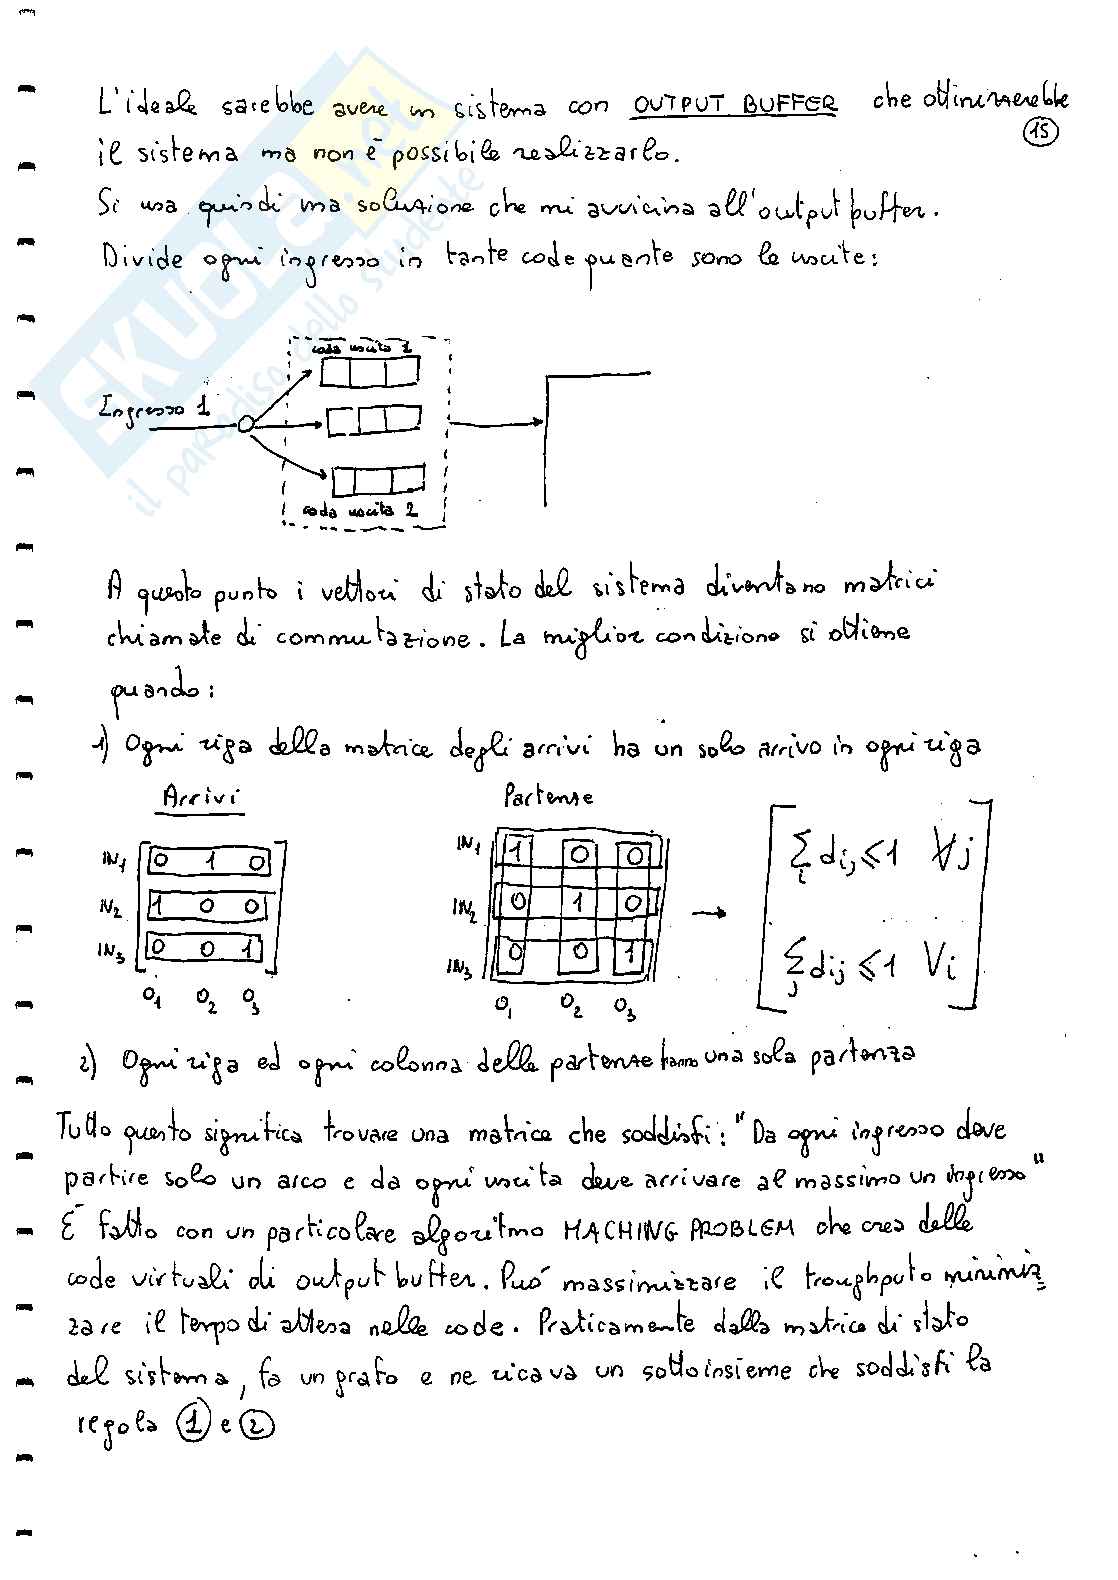 L'ideale sarebbe avere un sistema con OUTPUT BUFFER che ottimizzerebbe
15
il sistema ma non è possibile realizzarlo.
Si usa quindi una soluzione che mi avvicina all'output buffer.
Divide ogni ingresso in tante code quante sono le uscite:
coda uscita 1
Ingresso 1
coda uscita 2
A questo punto i vettori di stato del sistema diventano matrici
chiamate di commutazione. La miglior condizione si ottiene
quando:
1) Ogni riga della matrice degli arrivi ha un solo arrivo in ogni riga
Arrivi Partenze
IN1 0 1 0 IN1 1 0 0 ∑i dij ≤ 1 ∀j
IN2 1 0 0 IN2 0 1 0 →
IN3 0 0 1 IN3 0 0 1 ∑j dij ≤ 1 ∀i
O1 O2 O3 O1 O2 O3
2) Ogni riga ed ogni colonna delle partenze hanno una sola partenza
Tutto questo significa trovare una matrice che soddisfi: "Da ogni ingresso deve
partire solo un arco e da ogni uscita deve arrivare al massimo un ingresso"
È fatto con un particolare algoritmo MACHING PROBLEM che crea delle
code virtuali di output buffer. Può massimizzare il troughputo minimiz
zare il tempo di attesa nelle code. Praticamente dalla matrice di stato
del sistema, fa un grafo e ne ricava un sottoinsieme che soddisfi la
regola 1 e 2
SKUOLA.net
il paradiso dello studente